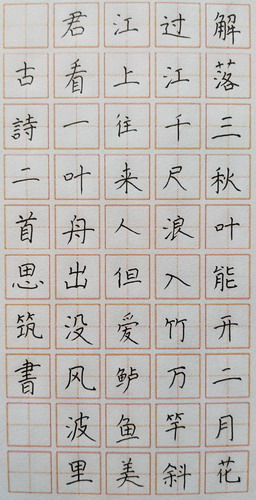 解落三秋叶能开二月花
过江千尺浪入竹万竿斜
江上往来人但爱鲈鱼美
君看一叶舟出没风波里
古詩二首思筑書